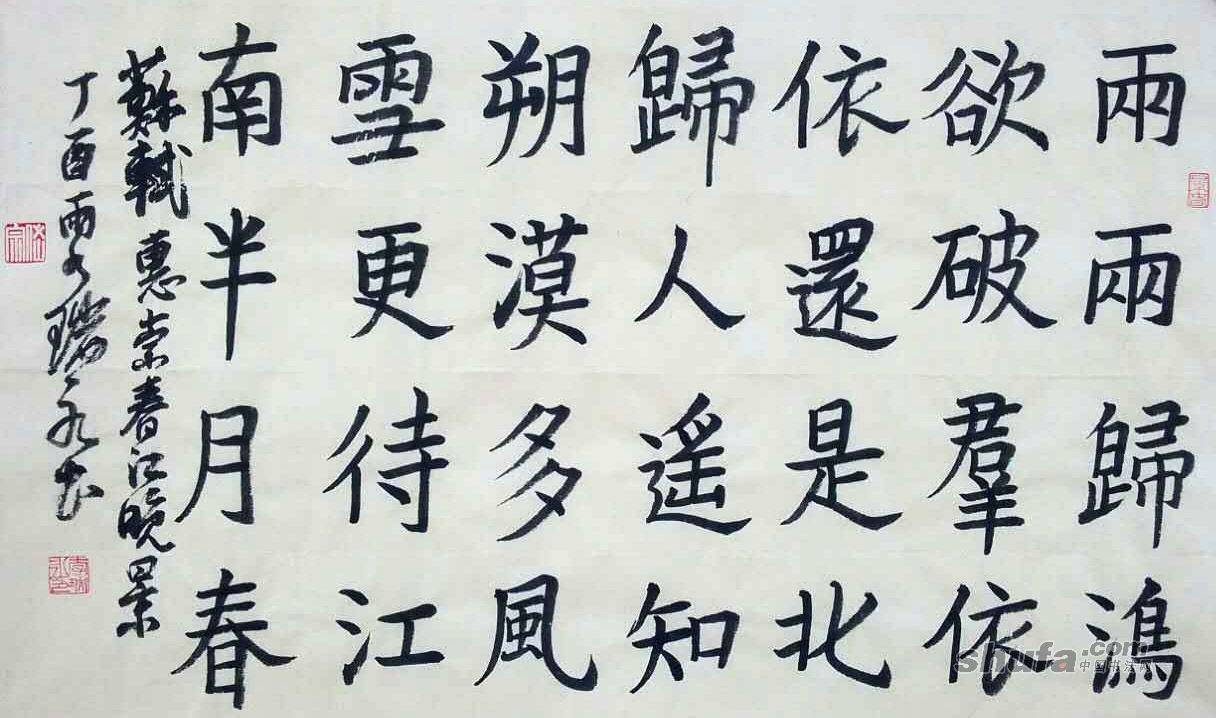 兩兩歸鴻
欲破羣依
依還是北
歸人遙知
朔漠多風
雪更待江
南半月春
蘇軾惠崇春江晚景
丁酉雨水瑞永书
shufa.com
中国书法网